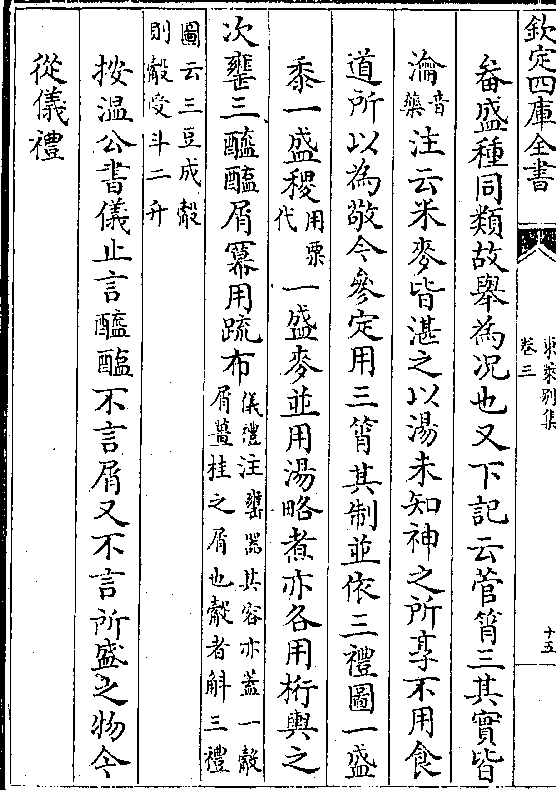 欽定四庫全書
東萊別集
卷三
十五
畚盛種同類故舉為况也又下記云菅筲三其實皆
瀹音藥注云米麥皆湛之以湯未知神之所享不用食
道所以為敬今參定用三筲其制並依三禮圖一盛
黍一盛稷用粟代一盛麥並用湯略煮亦各用桁舉之
次罋三醯醢屑冪用疏布儀禮注罋器其容亦蓋一觳屑薑桂之屑也觳者斛三禮
圖云三豆成觳則觳受斗二升
按溫公書儀止言醯醢不言屑又不言所盛之物今
從儀禮